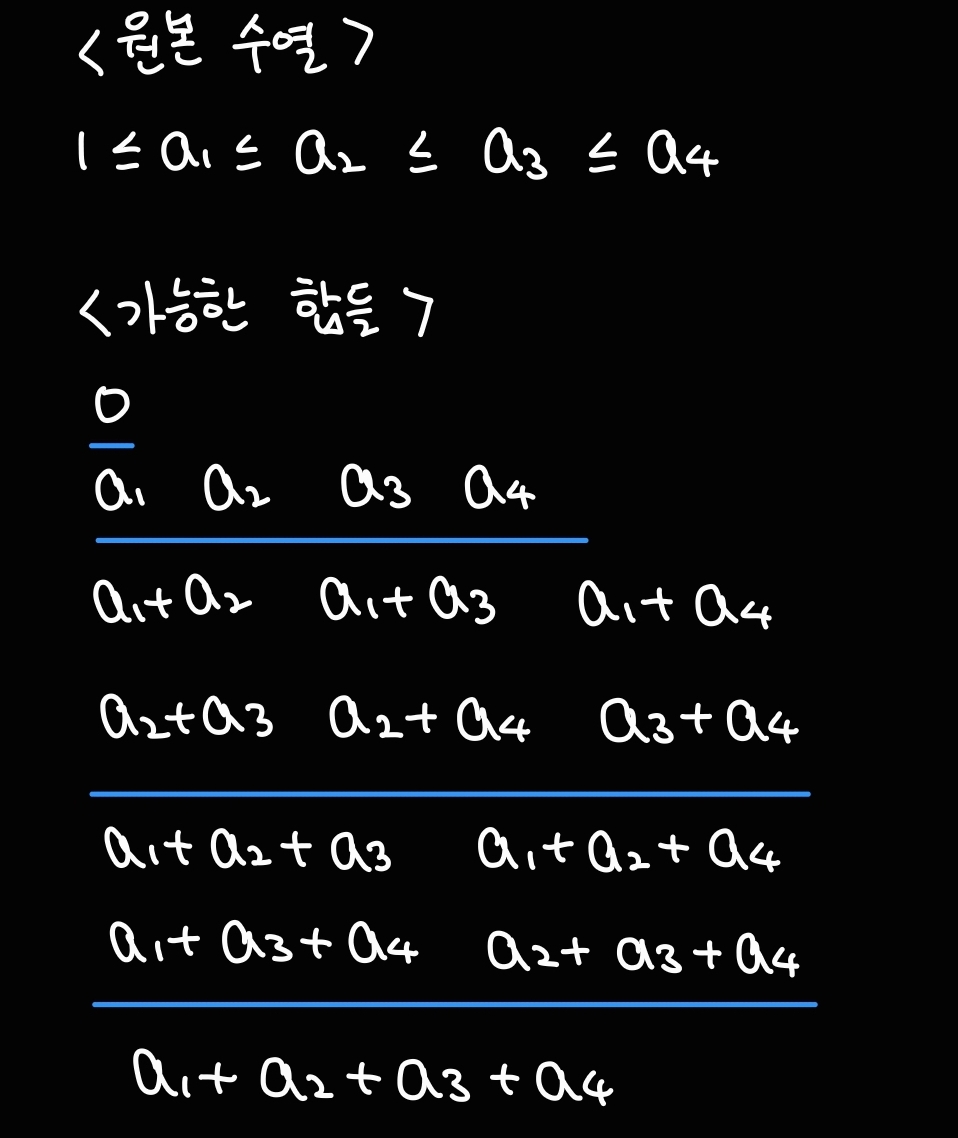 <원본 수열>
1 ≤ a₁ ≤ a₂ ≤ a₃ ≤ a₄
<가능한 합들>
0
a₁ a₂ a₃ a₄
a₁+a₂ a₁+a₃ a₁+a₄
a₂+a₃ a₂+a₄ a₃+a₄
a₁+a₂+a₃ a₁+a₂+a₄
a₁+a₃+a₄ a₂+a₃+a₄
a₁+a₂+a₃+a₄